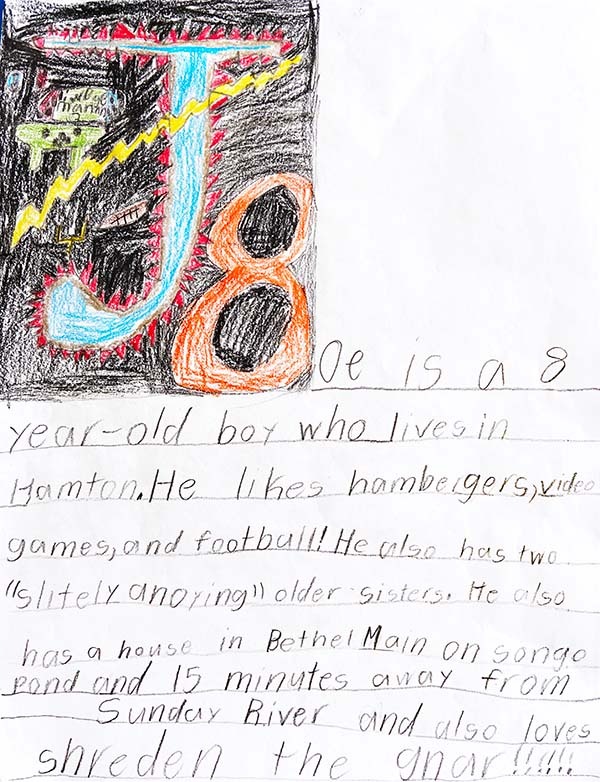 J
8
oe is a 8
year-old boy who lives in
Hamton. He likes hambeigers, video
games, and football! He also has two
"slitely anoying" older sisters. He also
has a house in Bethel Main on songo
pond and 15 minutes away from
Sunday River and also loves
shreden the gnar!!!!!